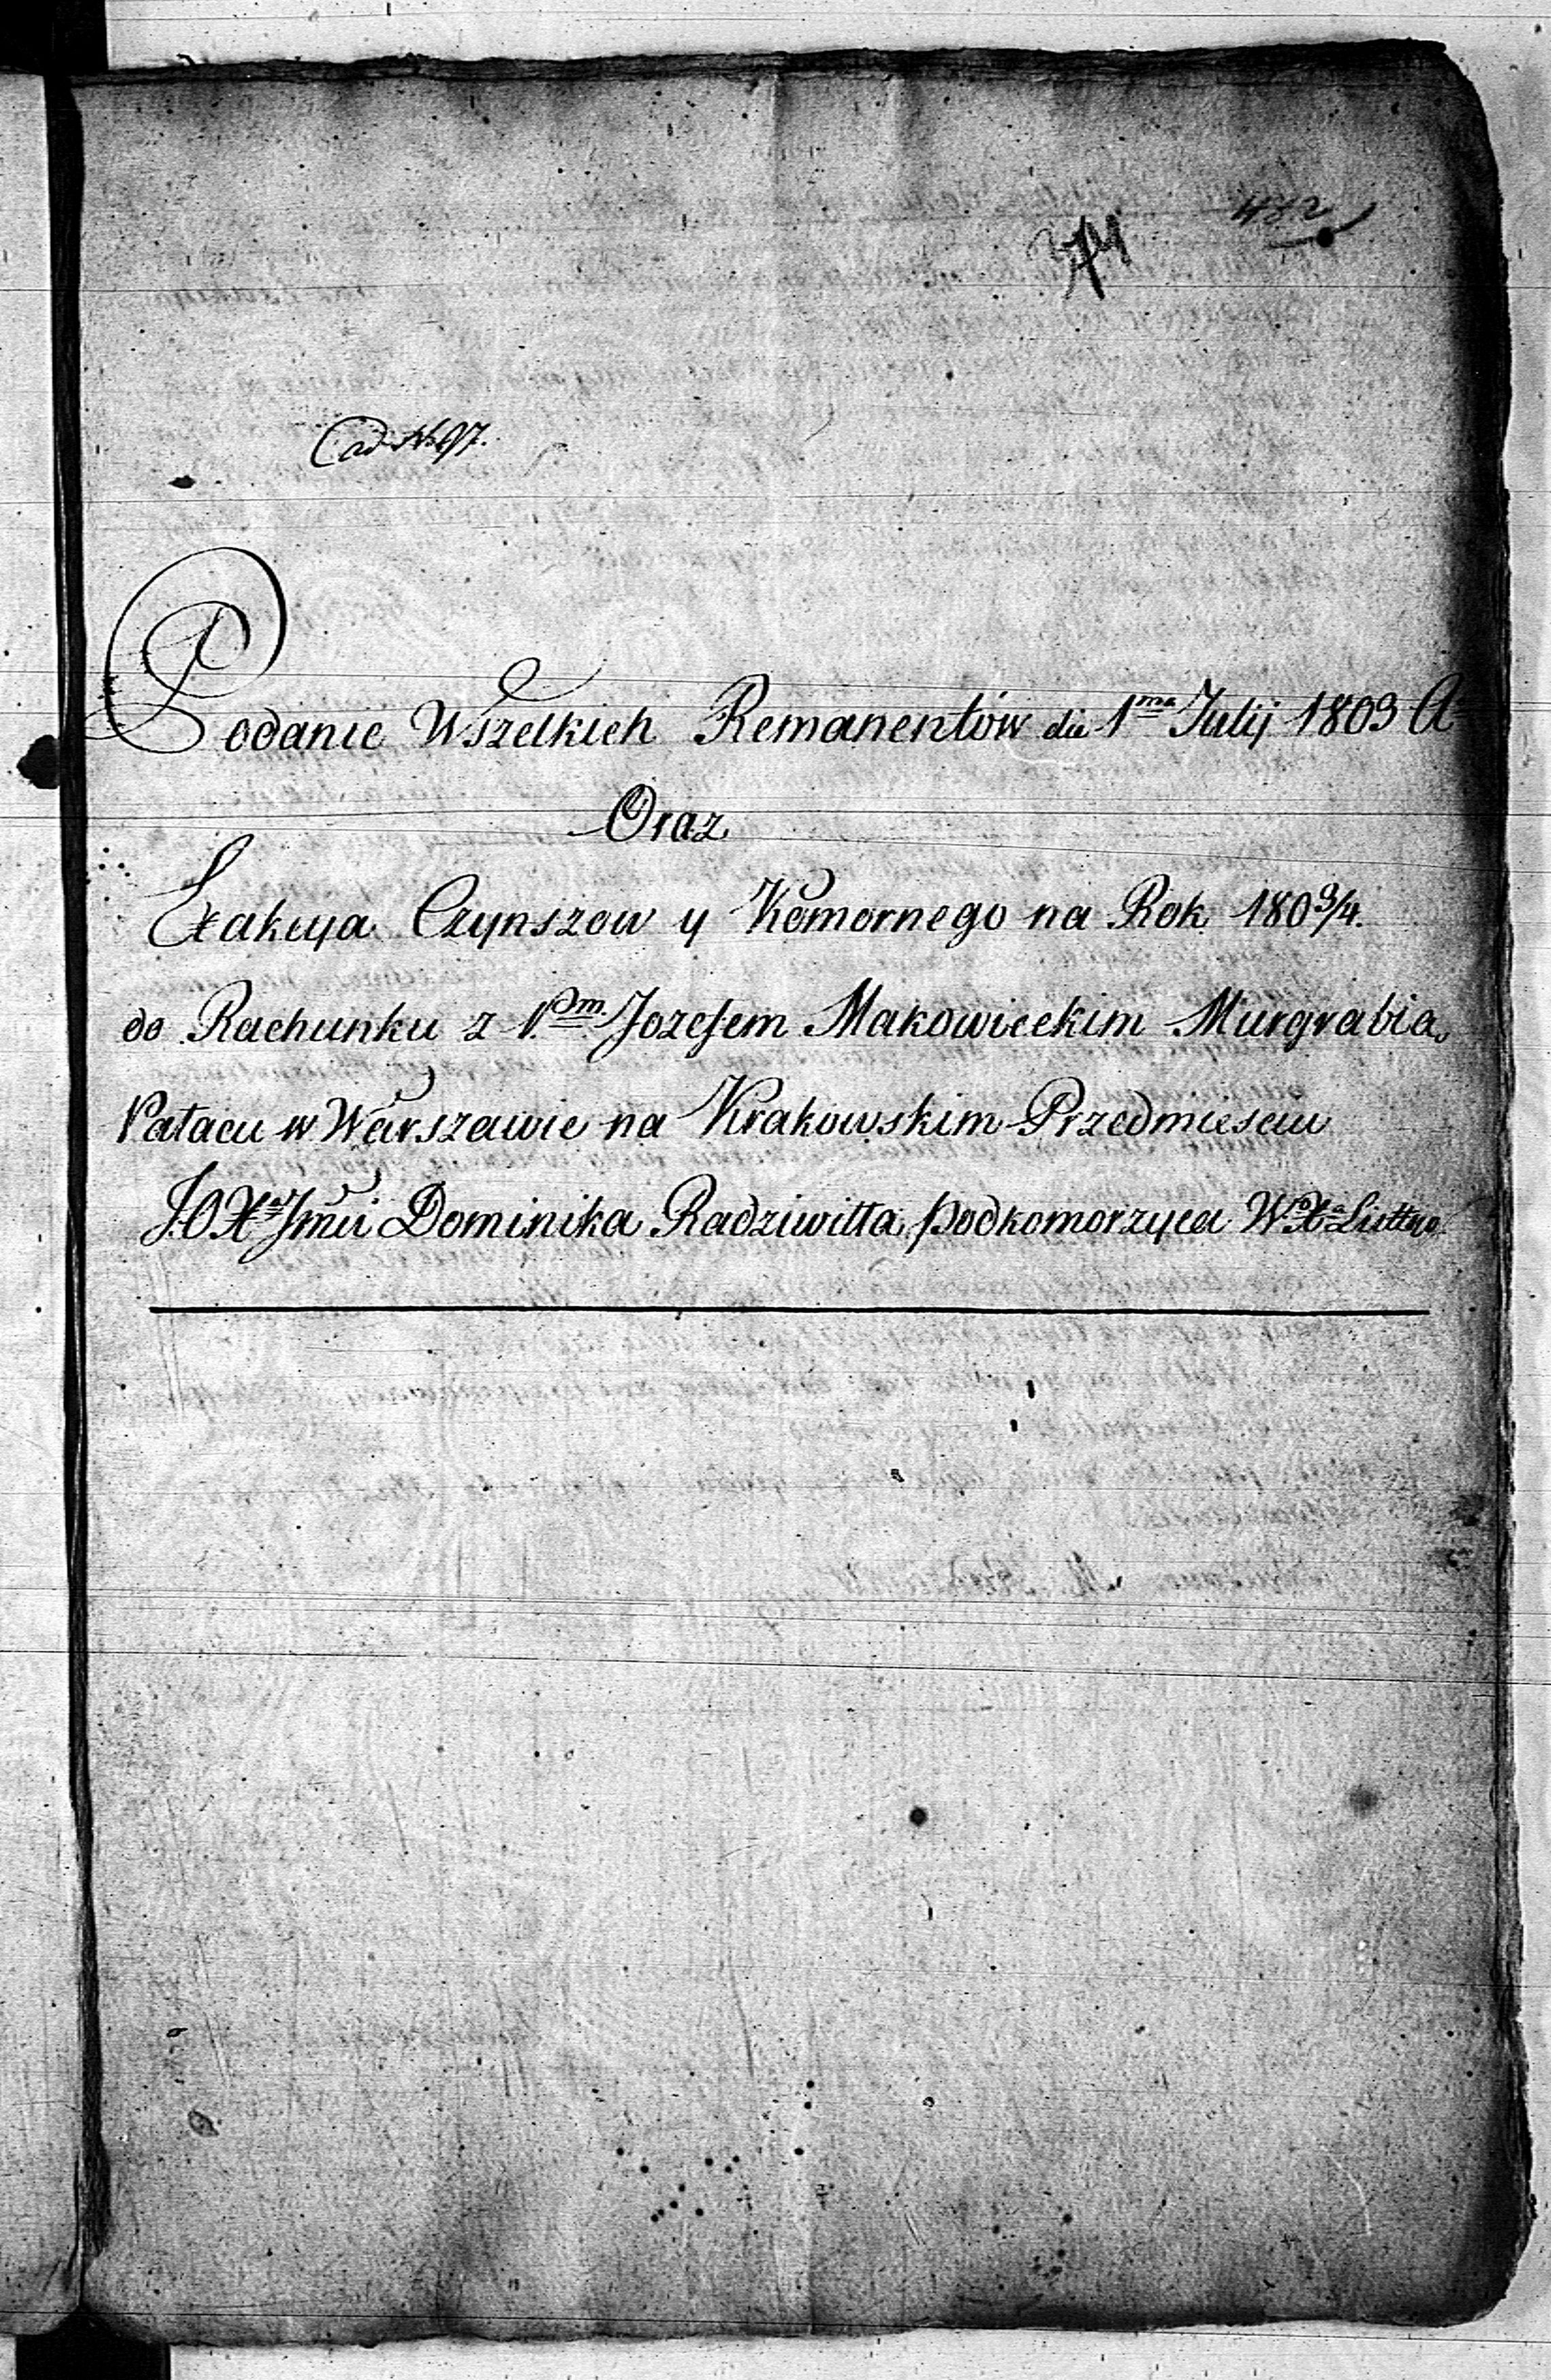 482
374
ad No 97.
Podanie Wszelkich Remanentów die 1ma Julij 1803 A
Oraz
Exakcya Czynszow y Komornego na Rok 1803/4.
do Rachunku z Pm Jozefem Makowieckim Murgrabią
Pałacu w Warszawie na Krakowskim Przedmiesciu
J.O.Xcia Jmci Dominika Radziwiłła, podkomorzyca W.X. Littgo